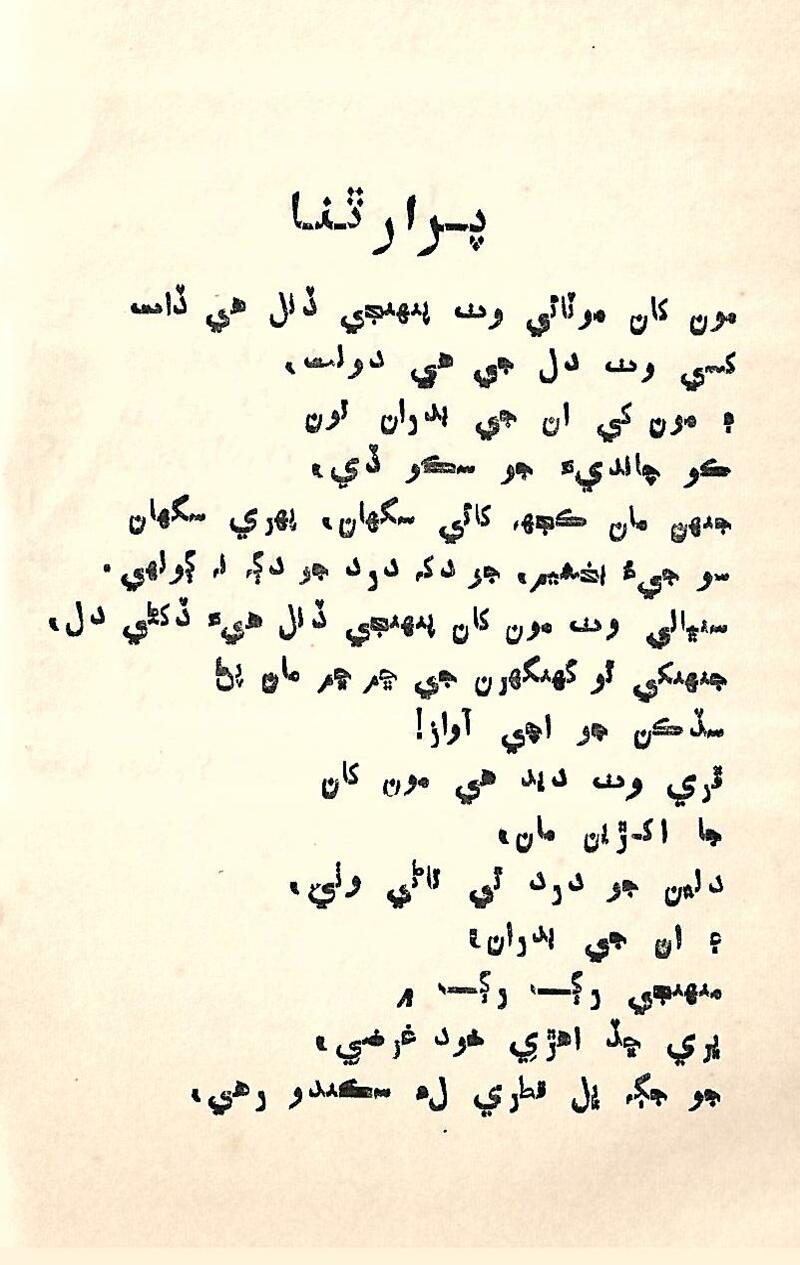 پرارٿنا
مون کان موٽائي وٺ پنھنجي ڏنل ھي ڏات
کسي وٺ دل جي ھي دولت،
۽ مون کي ان جي بدران تون
ڪو چانديءَ جو سڪو ڏي،
جنھن مان ڪجھہ کائي سگھان، پھري سگھان
سو جيءُ بخشيم، جو دک درد جو دڳ نہ ڳولھي.
سنڀالي وٺ مون کان پنھنجي ڏنل ھيءَ ڏکڻي دل،
جنھنکي ٿو گھنگھرن جي ڇم ڇم مان پڻ
سڏڪن جو اچي آواز!
ڦري وٺ ديد ھي مون کان
جا اکڙين مان،
دلين جو درد ٿي تاڻي وٺي،
۽ ان جي بدران؛
منھنجي رڳ رڳ ۾
ڀري ڇڏ اھڙي خود غرضي،
جو جڳ ڀل قطري لاءِ سڪندو رھي،